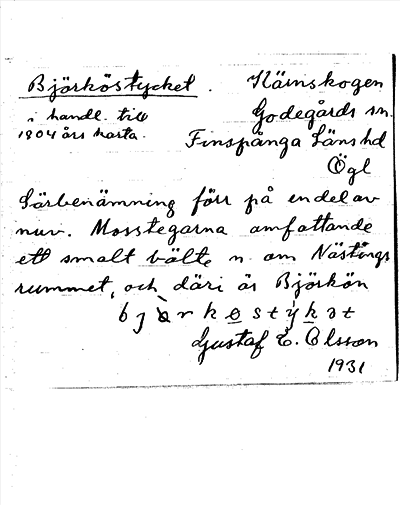 Björköstycket. Närnskogen
i handl. till Godegårds sn.
1804 års karta. Finspånga Läns hd
Ögl
Särbenämning förr på en del av
nuv. Mosstegarna omfattande
ett smalt bälte n. om Nästängs
rummet, och däri är Björkön
bjὼrkøstýkət
Gustaf E. Olsson
1931